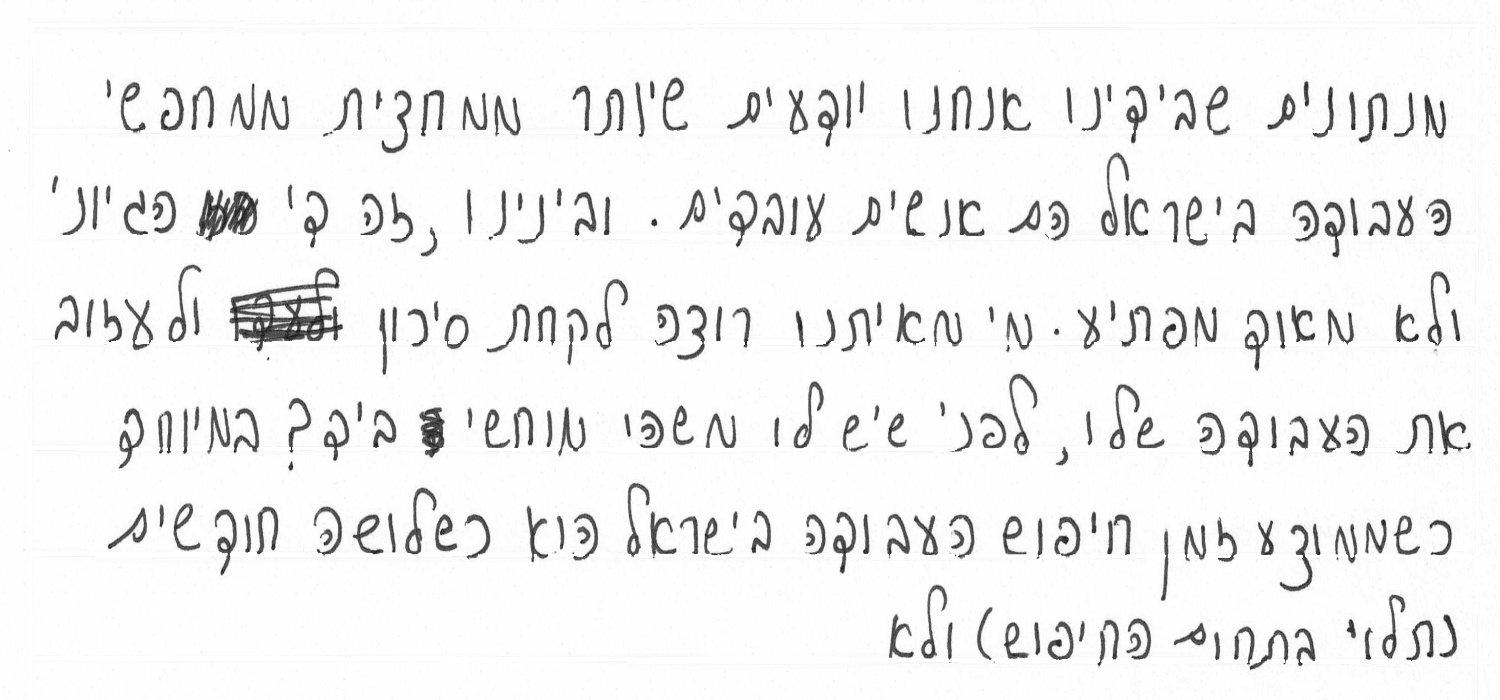 מנתונים שבידינו אנחנו יודעים שיותר ממחצית ממחפשי
העבודה בישראל הם אנשים עובדים. ובינינו, זה די הגיוני
ולא מאוד מפתיע. מי מאיתנו רוצה לקחת סיכון ולעזוב
את העבודה שלו, לפני שיש לו משהו מוחשי ביד? במיוחד
כשממוצע זמן חיפוש העבודה בישראל הוא כשלושה חודשים
נתלוי בתחום החיפוש) ולא